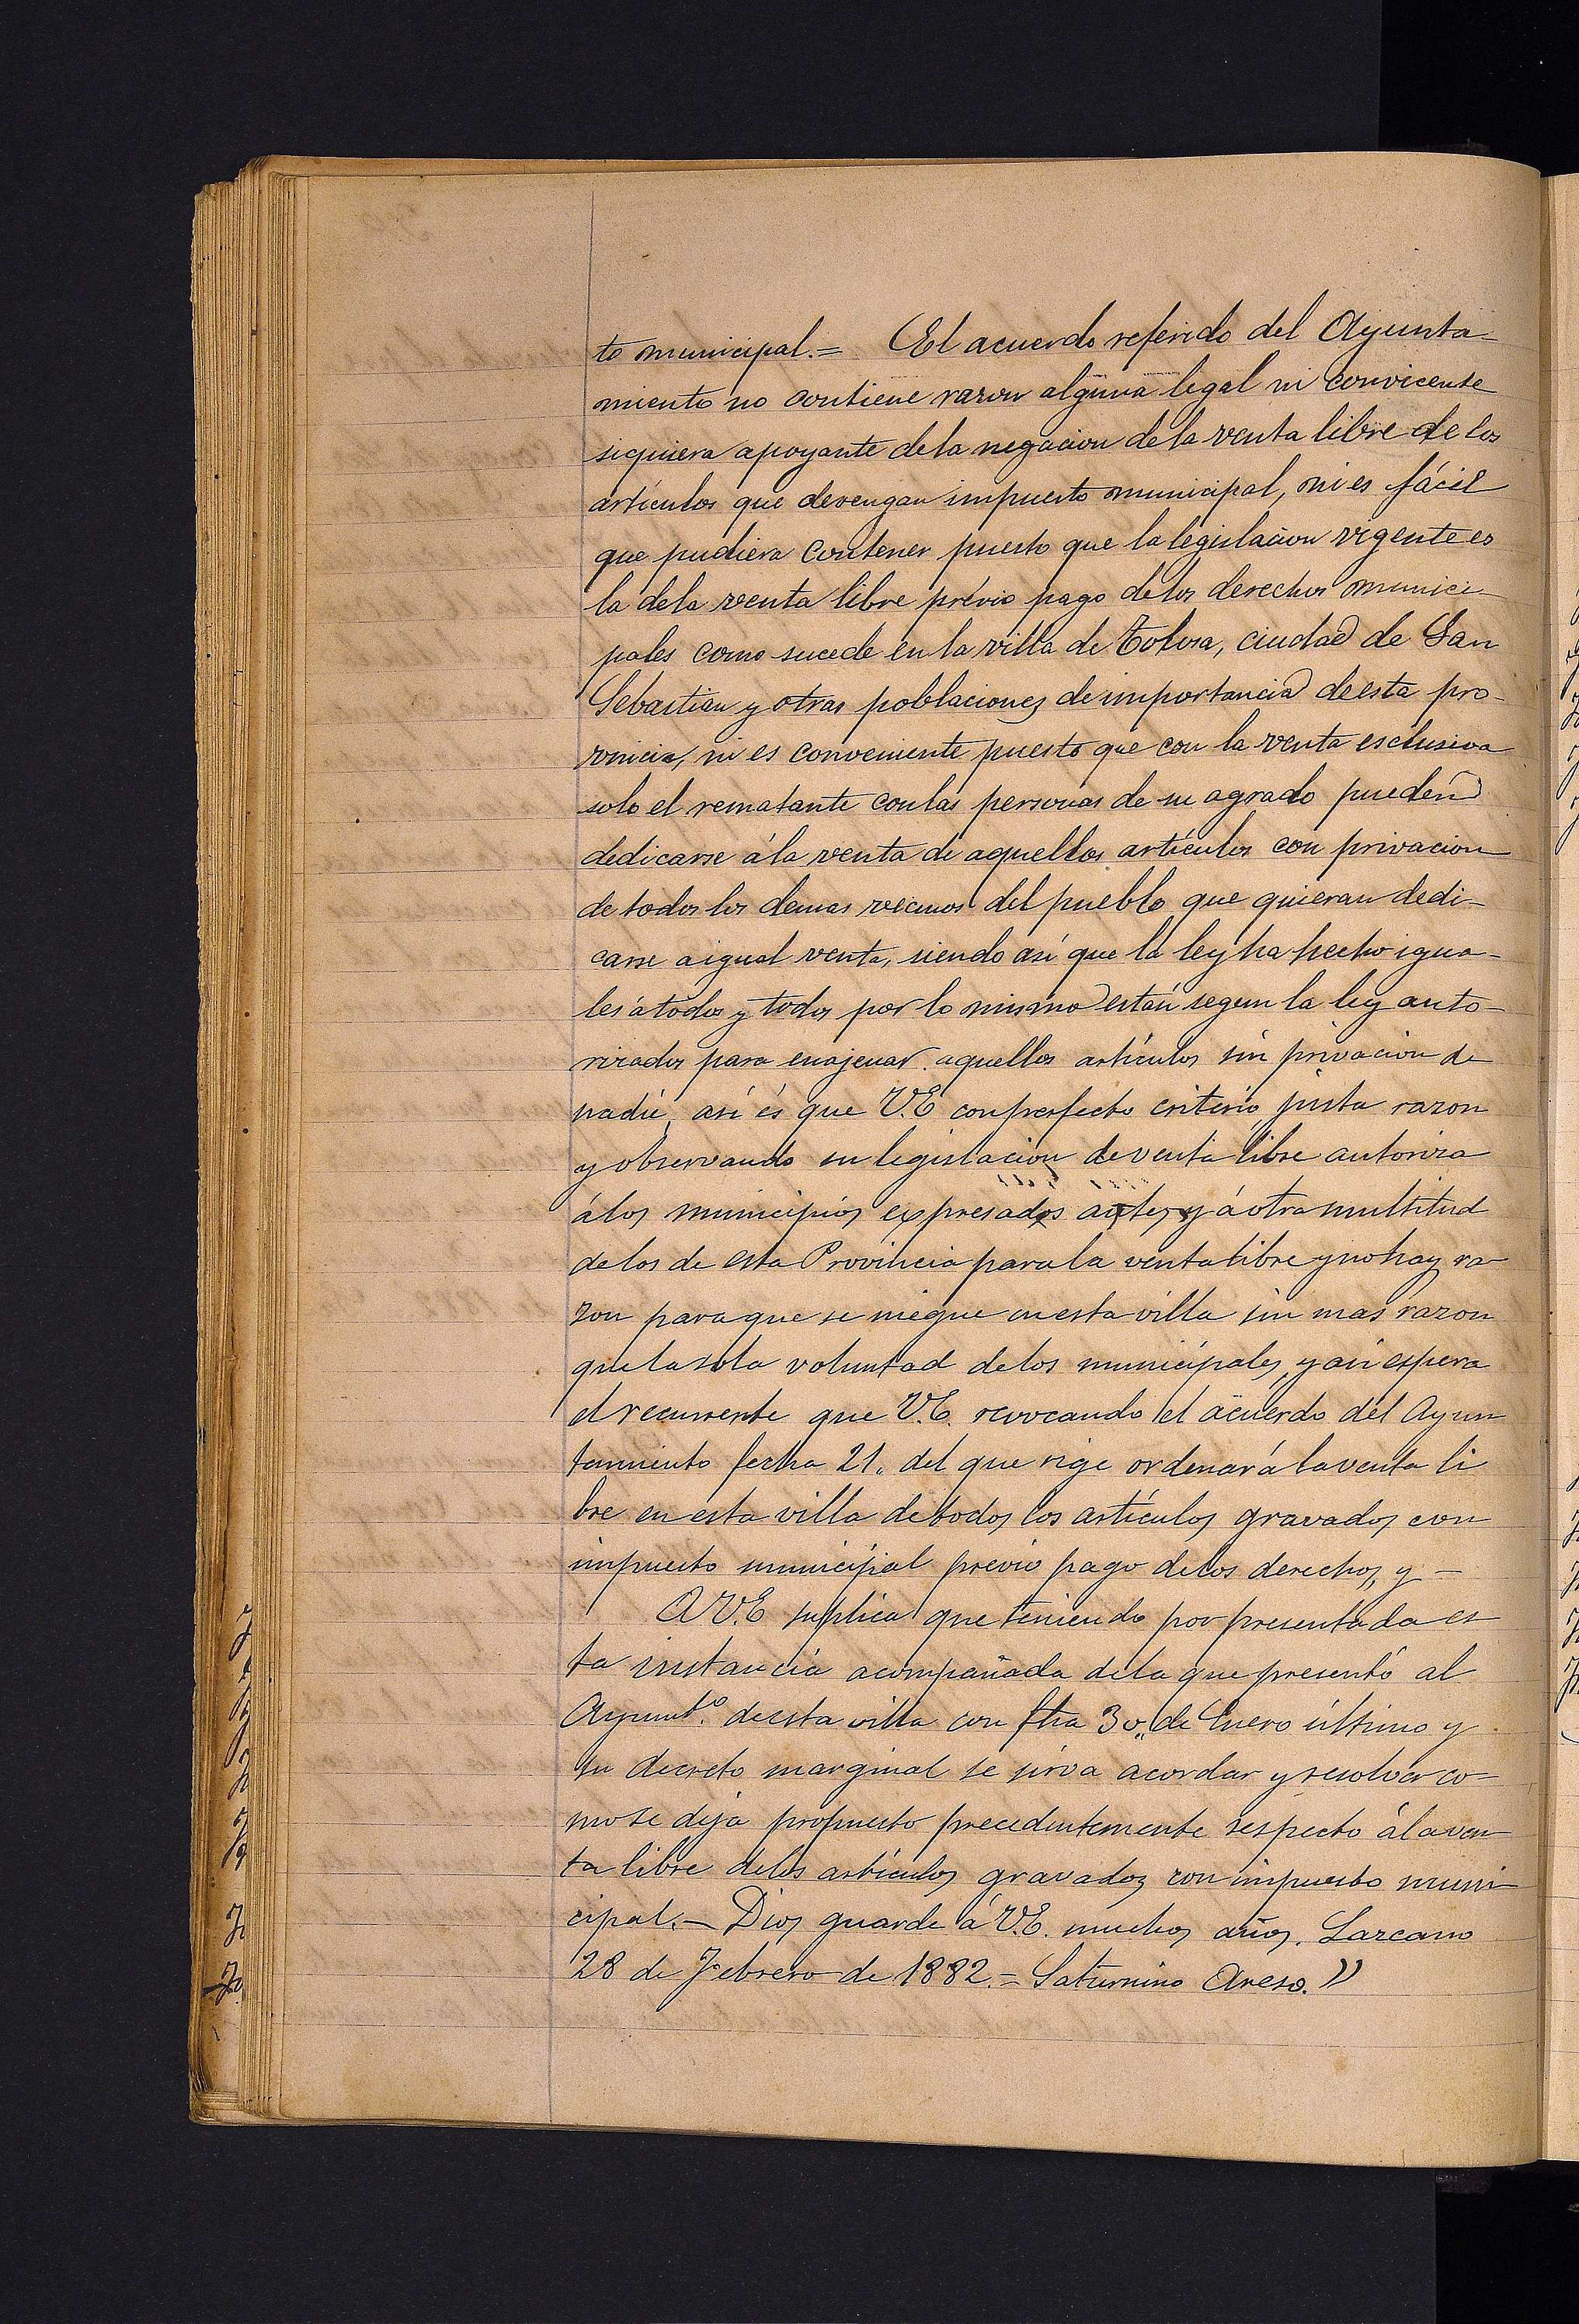 to municipal.= El acuerdo referido del Ayunta-
miento no contiene razon alguna legal ni convicente
siquiera apoyante de la negacion de la venta libre de los
artículos que devengan impuesto municipal, ni es fácil
que pudiera contener puesto que la legislacion vigente es
la de la venta libre prévio pago de los derechos munici-
pales como sucede en la villa de Tolosa, ciudad de San
Sebastian y otras poblaciones de importancia de esta pro-
vincia, ni es conveniente puesto que con la venta esclusiva
solo el rematante con las personas de su agrado pueden
dedicarse á la venta de aquellos artículos con privacion
de todos los demas vecinos del pueblo que quieran dedi-
carse a igual venta, siendo así que la ley ha hecho igua-
les á todos y todos por lo mismo están segun la ley auto-
rizados para enajenar aquellos artículos sin privacion de
nadie, así és que V.E con perfecto criterio, justa razon
y observando su legislacion de venta libre autoriza
á los municipios expresados antes y á otra multitud
de los de esta Provincia para la venta libre y no hay ra-
zon para que se niegue en esta villa sin mas razon
que la sola voluntad de los municipales, y así espera
el recurrente que V.E. revocando el acuerdo del Ayun
tamiento fecha 21. del que rige ordenará la venta li
bre en esta villa de todos los artículos gravados con
impuesto municipal previo pago de los derechos, y -
A V.E suplica que teniendo por presentada es
ta instancia acompañada de la que presentó al
Ayunt.º de esta villa con fha 30,, de Enero último y
su decreto marginal se sirva acordar y resolver co-
mo se deja propuesto precedentemente respecto á la ven
ta libre de los artículos gravados con impuesto muni-
cipal.- Dios guarde á V.E. muchos años. Lazcano
28 de Febrero de 1882.= Saturnino Areso."